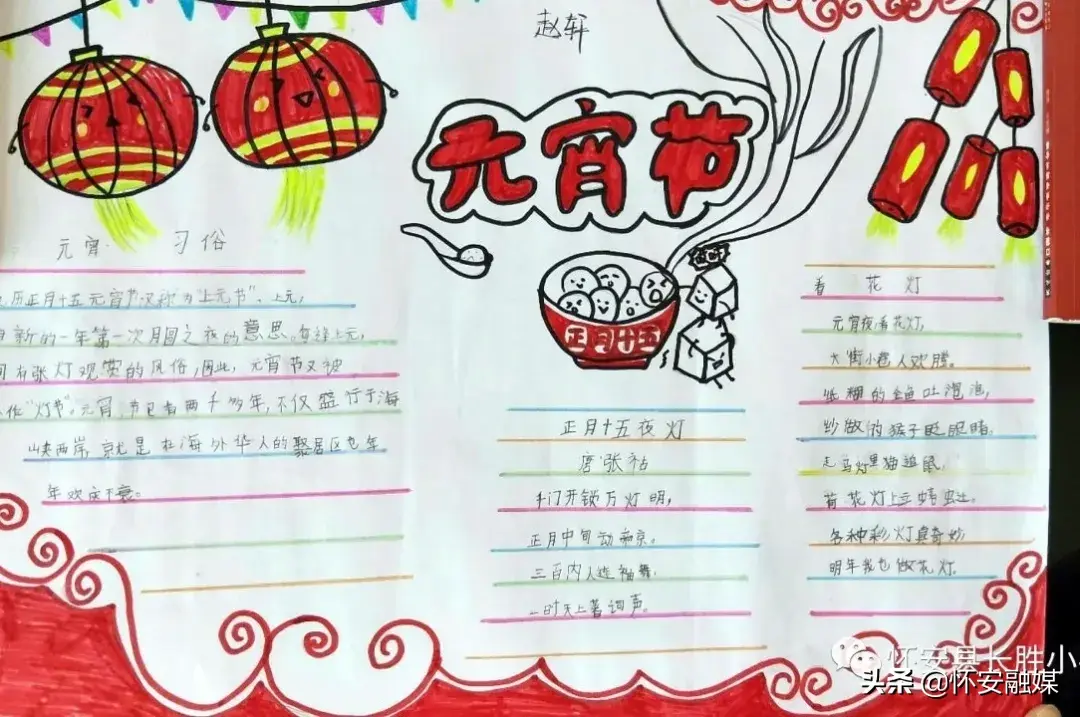 赵轩
元宵节
正月十五
元宵 习俗
历正月十五元宵节又称为"上元节"、上元,
新的一年第一次月圆之夜的意思。每逢上元,
有张灯观赏的风俗,因此,元宵节又被
作"灯节"。元宵节已有两千多年,不仅盛行于海
峡两岸,就是在海外华人的聚居区也年
年欢庆不衰。
正月十五夜灯
唐张祜
千门开锁万灯明,
正月中旬动帝京。
三百内人连袖舞,
一时天上著词声。
看花灯
元宵夜,看花灯,
大街小巷人欢腾。
纸糊的金鱼吐泡泡,
纱做的猴子眨眼睛。
走马灯里猫追鼠,
荷花灯上蜻蜓。
各种彩灯真奇妙
明年我也做花灯。
怀安县长胜小
头条 @怀安融媒